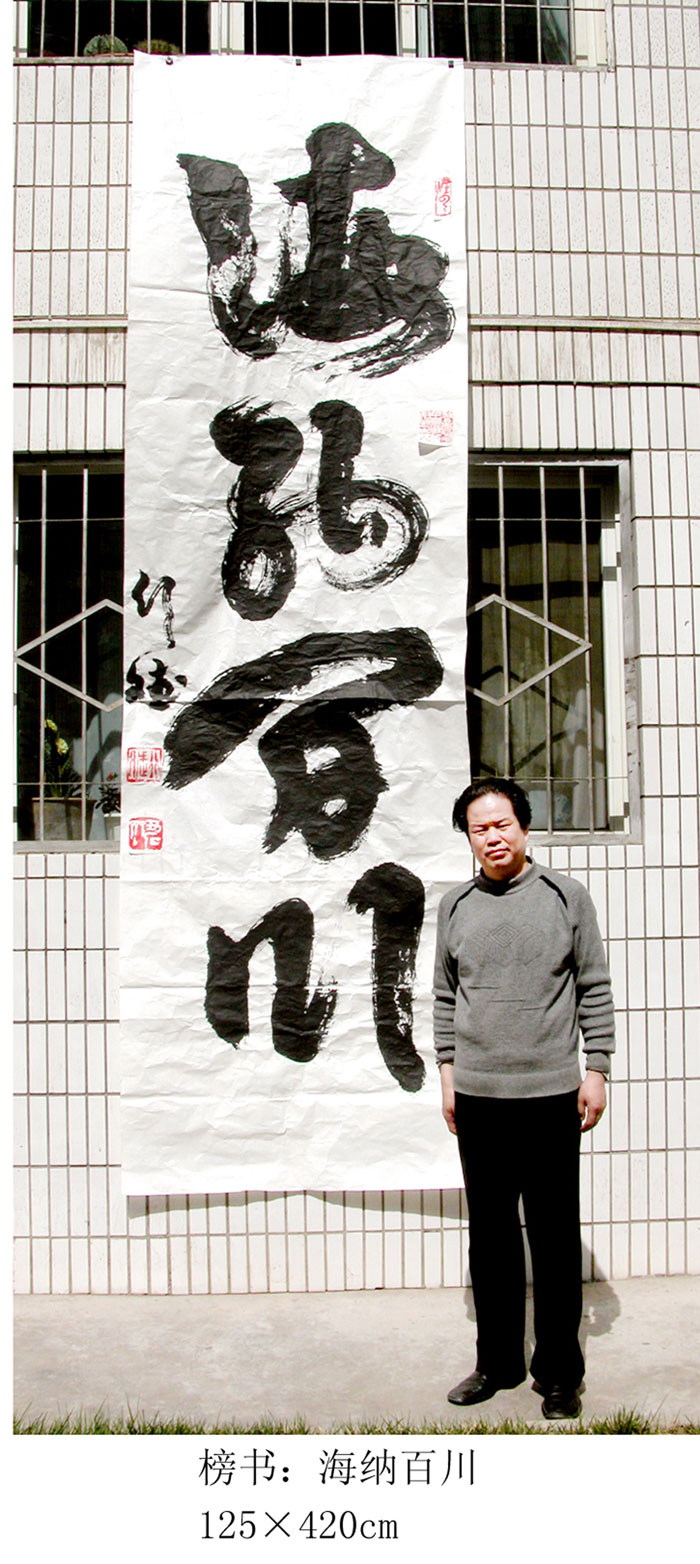 海纳百川
行健
榜书：海纳百川
125×420cm